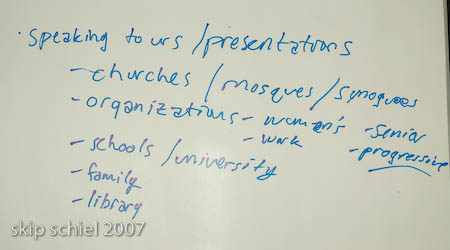 · speaking tours/presentations
- churches/mosques/synogues
- organizations - women's - senior
- work - progressive
- schools/university
- family
- library
skip schiel 2007